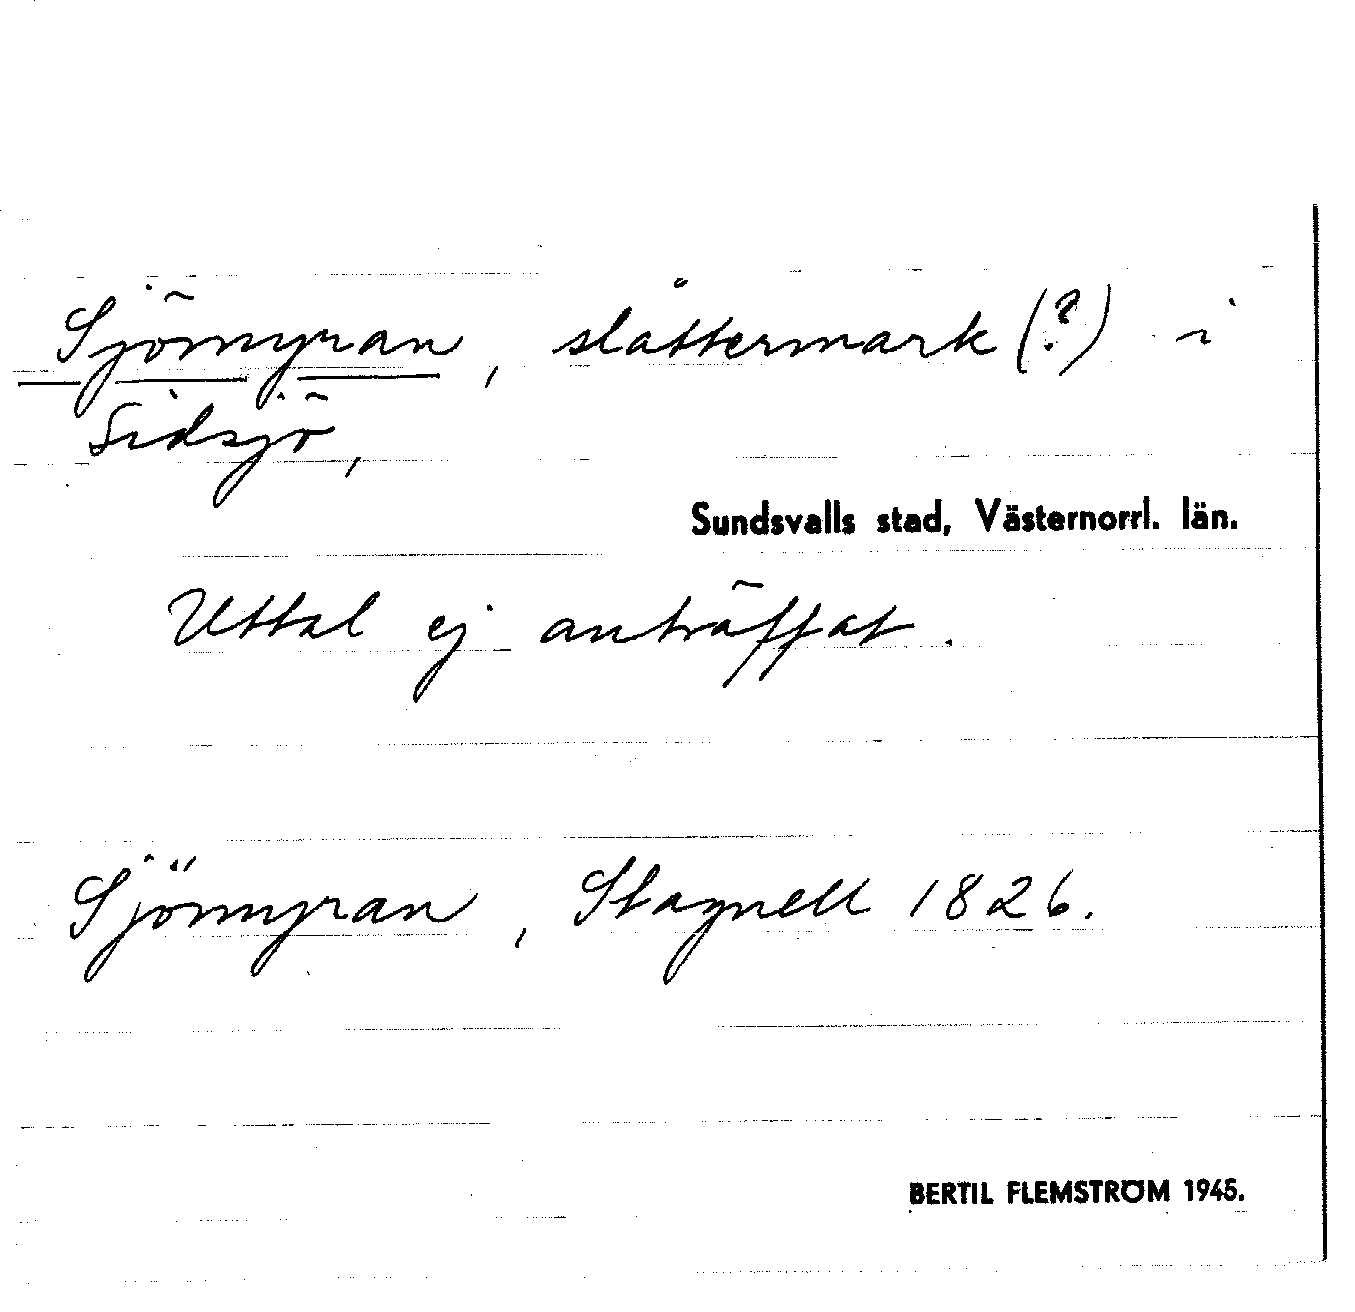 Sjömyran, slåttermark (?) i
Sidsjö,
Sundsvalls stad, Västernorrl. län.
Uttal ej anträffat.
Sjömyran, Stagnell 1826.
BERTIL FLEMSTRÖM 1945.